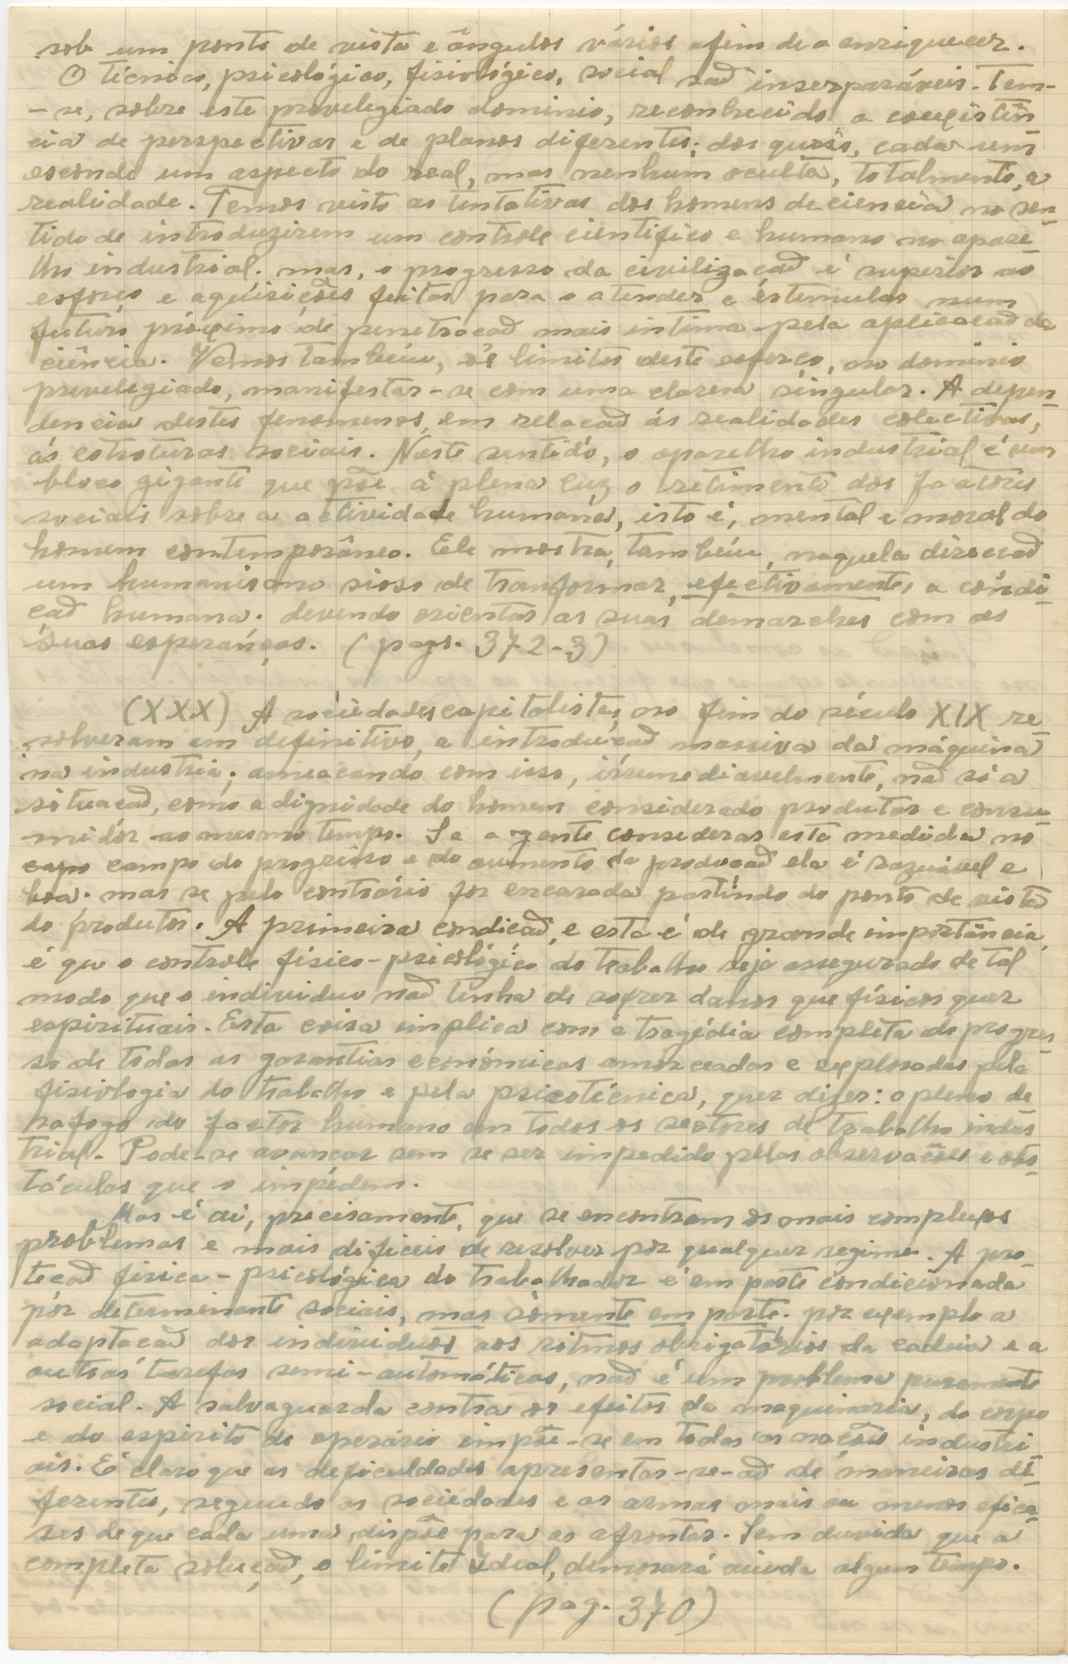 sob um ponto de vista e ângulos vários afim de a enriquecer.
O técnico, psicológico, fisiológico, social saõ inserparáveis. Tem-
-se, sobre este previlegiado dominio, reconhecido a coexistên
cia de perspectivas e de planos diferentes; dos quais, cada um
esconde um aspecto do real, mas nenhum oculta, totalmente, a
realidade. Temos visto as tentativas dos homens de ciencia no sen
tido de introduzirem um controle cientifico e humano no apare
lho industrial. mas, o progresso da civilizacaõ é superior ao
esforço e aquisições feitas para o atender e éstimulos num
futuro próximo de penetracaõ mais intima pela aplicacaõ da
ciência. Vemos também, os limites deste esforço, no dominio
previlegiado, manifestar-se com uma clareza singular. A depen
dencia destes fenomenos, em relacaõ ás realidades colectivas,
ás estroturas sociais. Neste sentido, o aparelho industrial é um
bloco gigante que põe á plena luz o retimento dos factores
sociais sobre a actividade humana, isto é, mental e moral do
homem contemporâneo. Ele mostra, também, naquela direccaõ
um humanismo sioso de tranformar, efectivamente, a cóndi
caõ humana. devendo orientar as suas demarches com as
suas esperanças. (pags. 372-3)
(XXX) A sociedades capitalistas, no fim do século XIX re
solveram em definitivo, a introduçaõ massiva da máquina
na industria; ameaçando com isso, irremediavelmente, naõ só a
situacaõ, como a dignidade do homem considerado produtor e consu
midôr ao mesmo tempo. Se a gente considerar esta medida no
capo campo do progresso e do aumento da produçaõ ela é razuável e
boa. mas se pelo contrário for encarada partindo do ponto de vista
do produtor. A primeira condicaõ, e esta é de grande importância,
é que o controle fisico-psicológico do trabalho seja assegurado de tal
modo que o individuo naõ tenha de sofrer danos que físicos quer
espirituais. Esta coisa implica com a tragédia completa do progres
so de todas as garantias económicas amorceadas e exploradas pela
fisiologia do trabalho e pela psicotécnica, quer dizer: o pleno de
safogo do factor humano em todos os sectores de trabalho indus
trial. Pode-se avançar sem se ser impedido pelas observações e obs-
táculos que o impédem.
Mas é ai, precisamente, que se encontram os mais complexos
problemas e mais dificeis de resolver por qualquer regime. A pro
tecaõ fisica-psicológica do trabalhador é em parte cóndicionada
pór determinante sociais, mas sómente em parte. por exemplo a
adaptacaõ dos individuos aos ritmos obrigatórios da cadeia e a
outras tarefas semi-automáticas, naõ é um problema puramente
social. A salvaguarda contra os efeitos da maquinaria, do corpo
e do espirito do operário impõe-se em todas as nações industri
ais. É claro que as deficuldades apresentar-se-aõ de maneiras di
ferentes, segundo as sociedades e as armas mais ou menos efica
ses de que cada uma dispõe para as afrontar. Sem duvida que a
completa soluçaõ, o limite ideal, demorará ainda algum tempo.
(pag. 370)